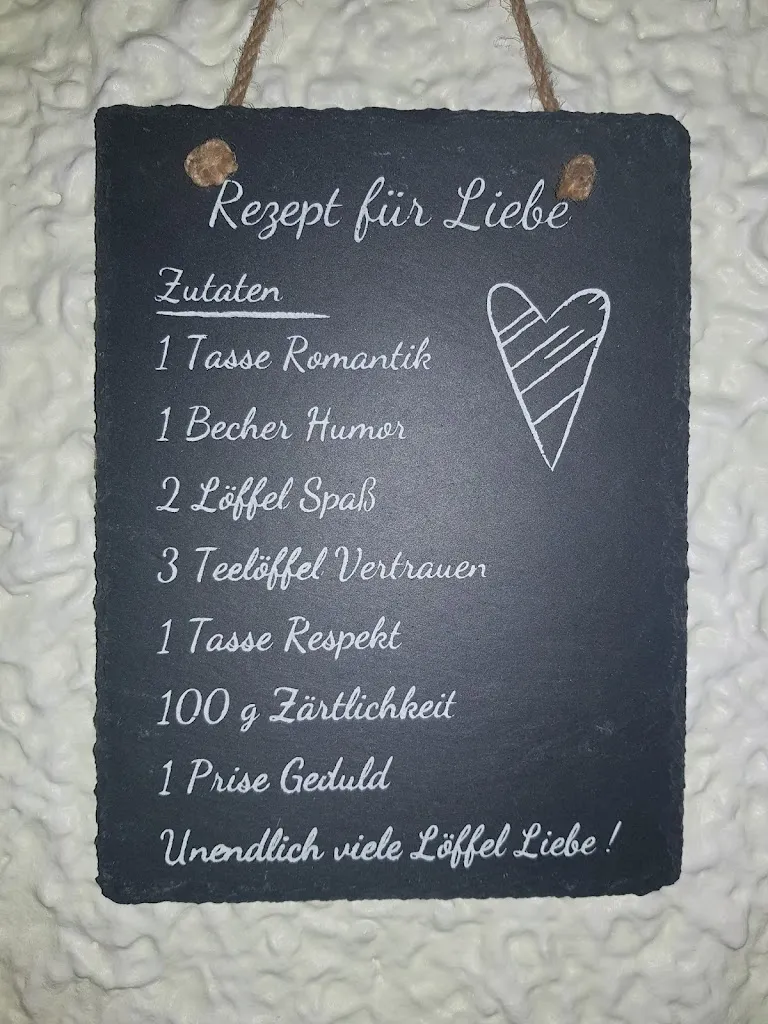 Rezept für Liebe
Zutaten
1 Tasse Romantik
1 Becher Humor
2 Löffel Spaß
3 Teelöffel Vertrauen
1 Tasse Respekt
100 g Zärtlichkeit
1 Prise Geduld
Unendlich viele Löffel Liebe !